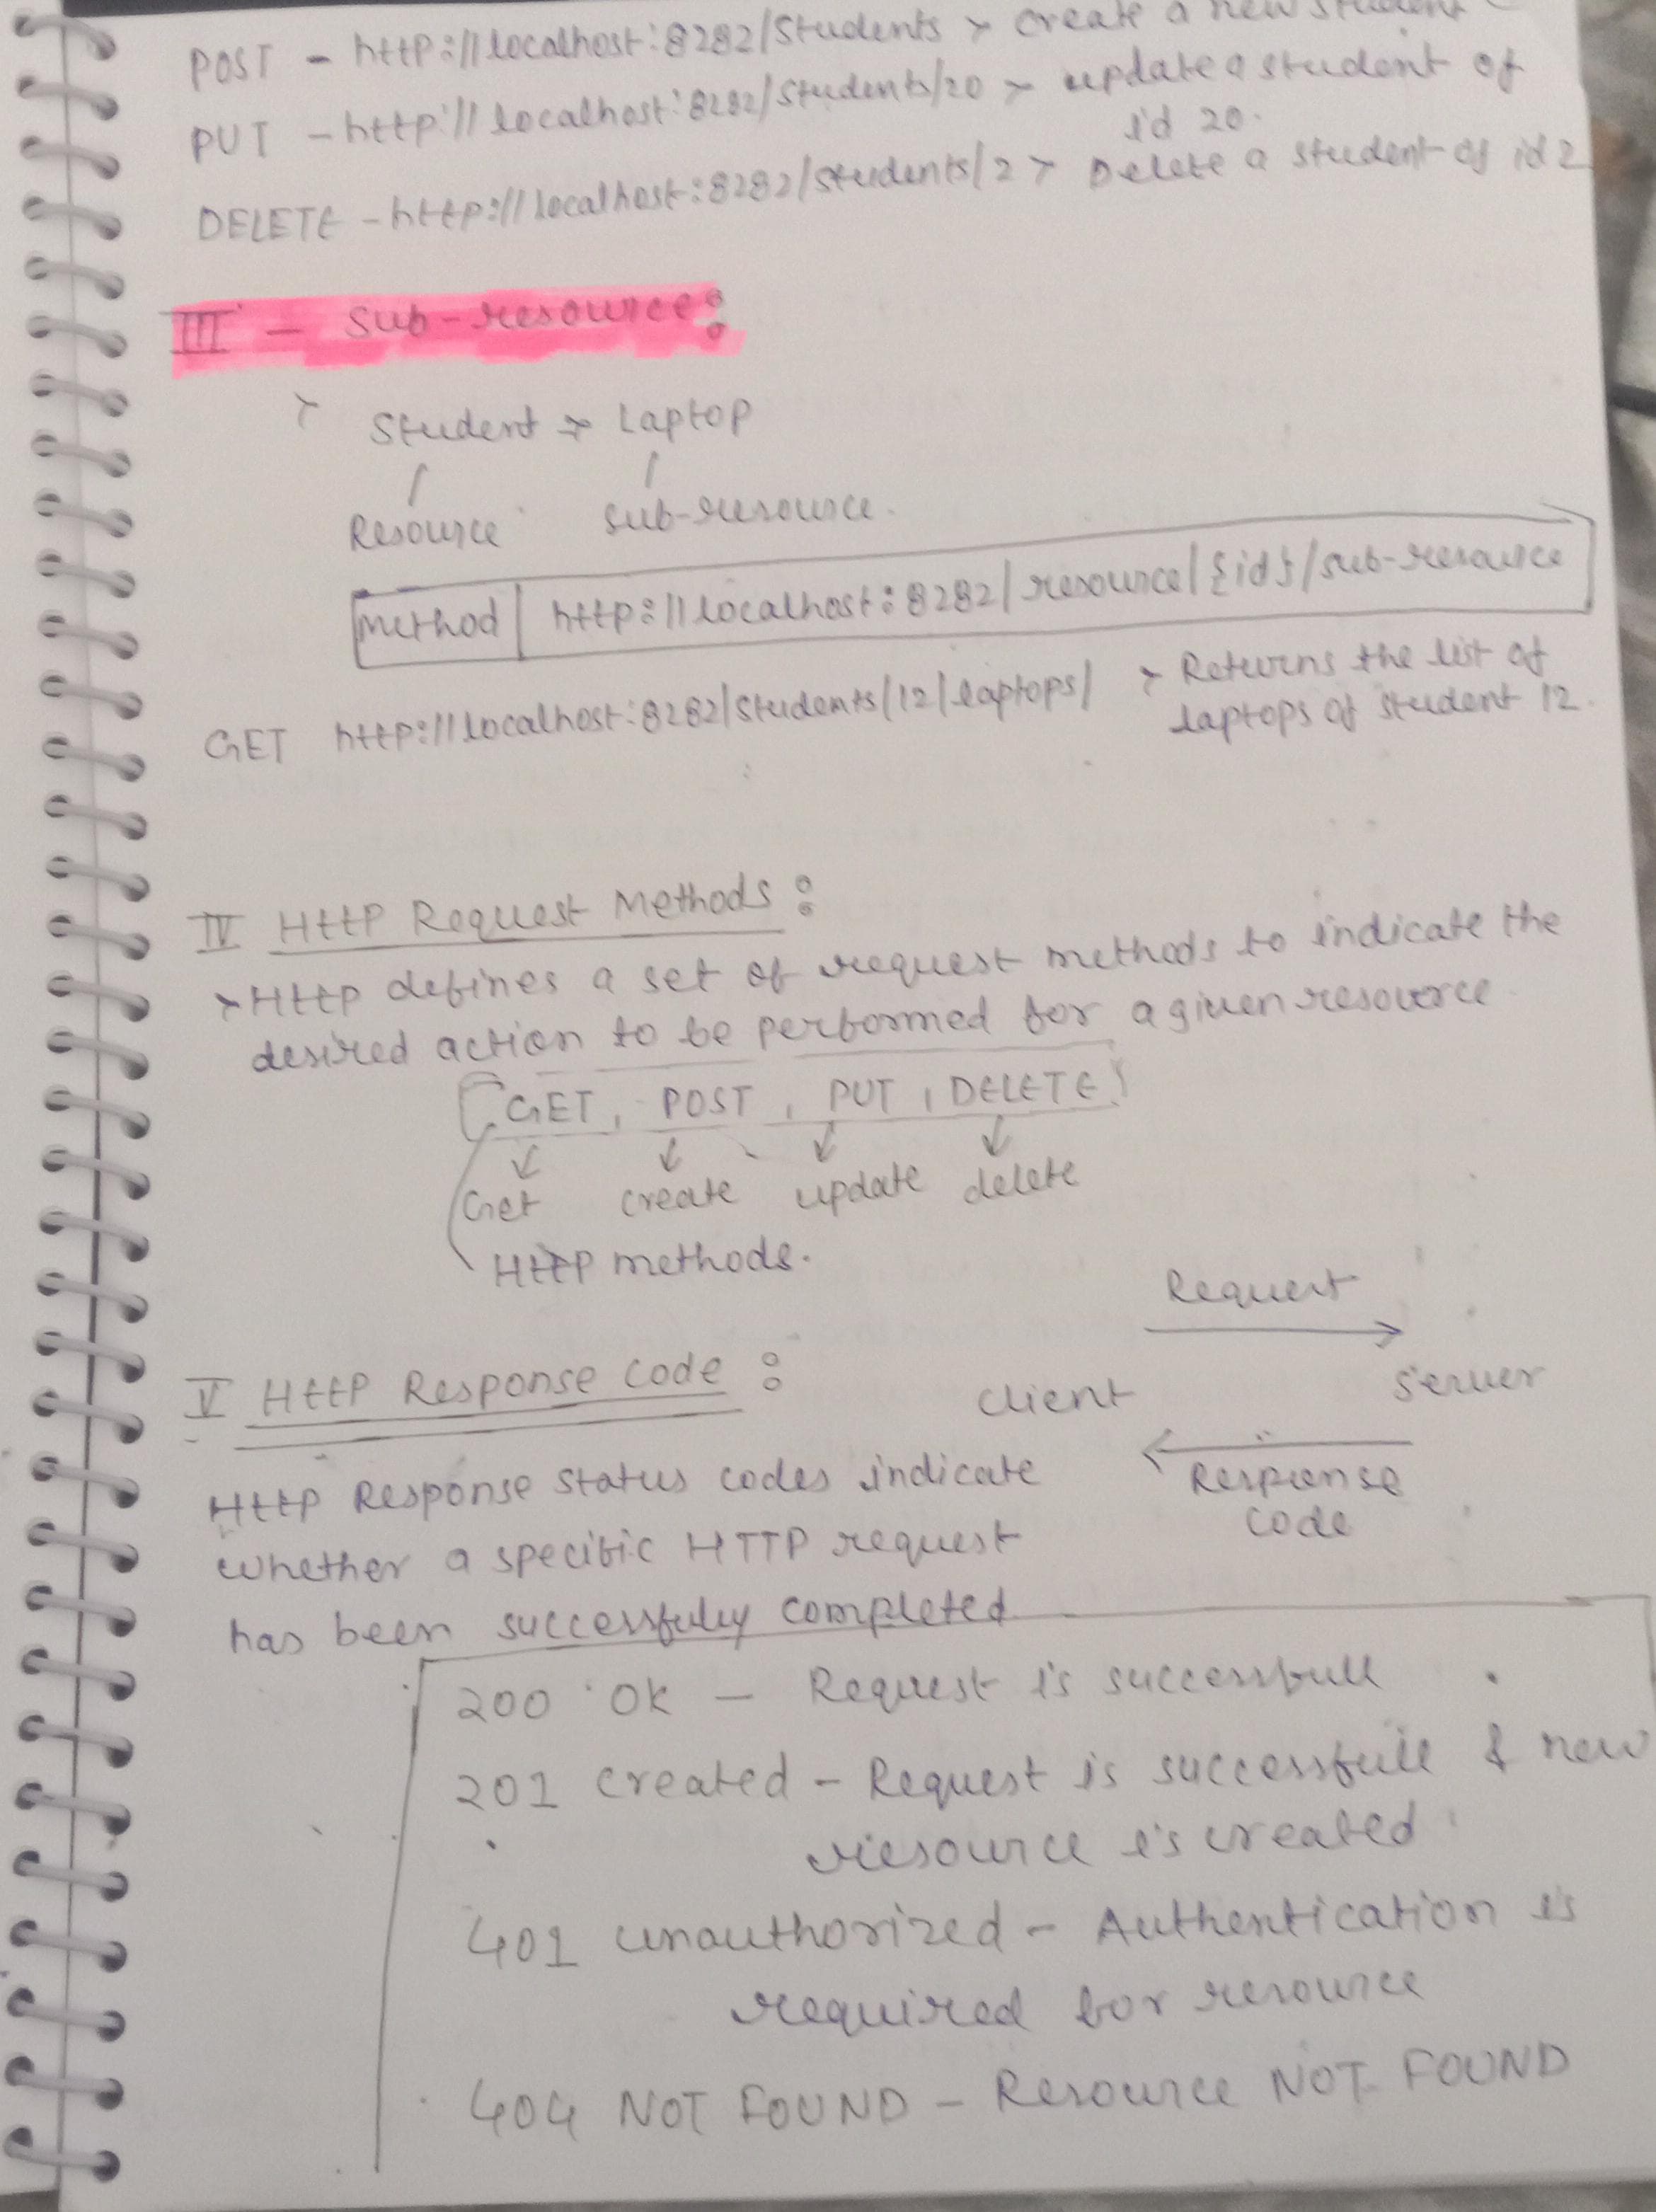 POST - http://localhost:8282/Students > create a new student
PUT - http://localhost:8282/Students/20 > update a student of
id 20.
DELETE - http://localhost:8282/Students/2 > Delete a student of id 2
III - Sub-resource:
> Student > Laptop
Resource sub-resource.
Method | http://localhost:8282/resource/{id}/sub-resource
GET http://localhost:8282/Students/12/laptops/ > Returns the list of
laptops of student 12.
IV Http Request Methods :
> Http defines a set of request methods to indicate the
desired action to be performed for a given resource.
GET, POST, PUT, DELETE
Get create update delete
Http methods.
Request
V Http Response code :
client Server
Http Response status codes indicate
Response
code
whether a specific HTTP request
has been successfully completed
200 Ok - Request is successfull
201 created - Request is successfull & new
resource is created
401 unauthorized - Authentication is
required for resource
404 NOT FOUND - Resource NOT FOUND